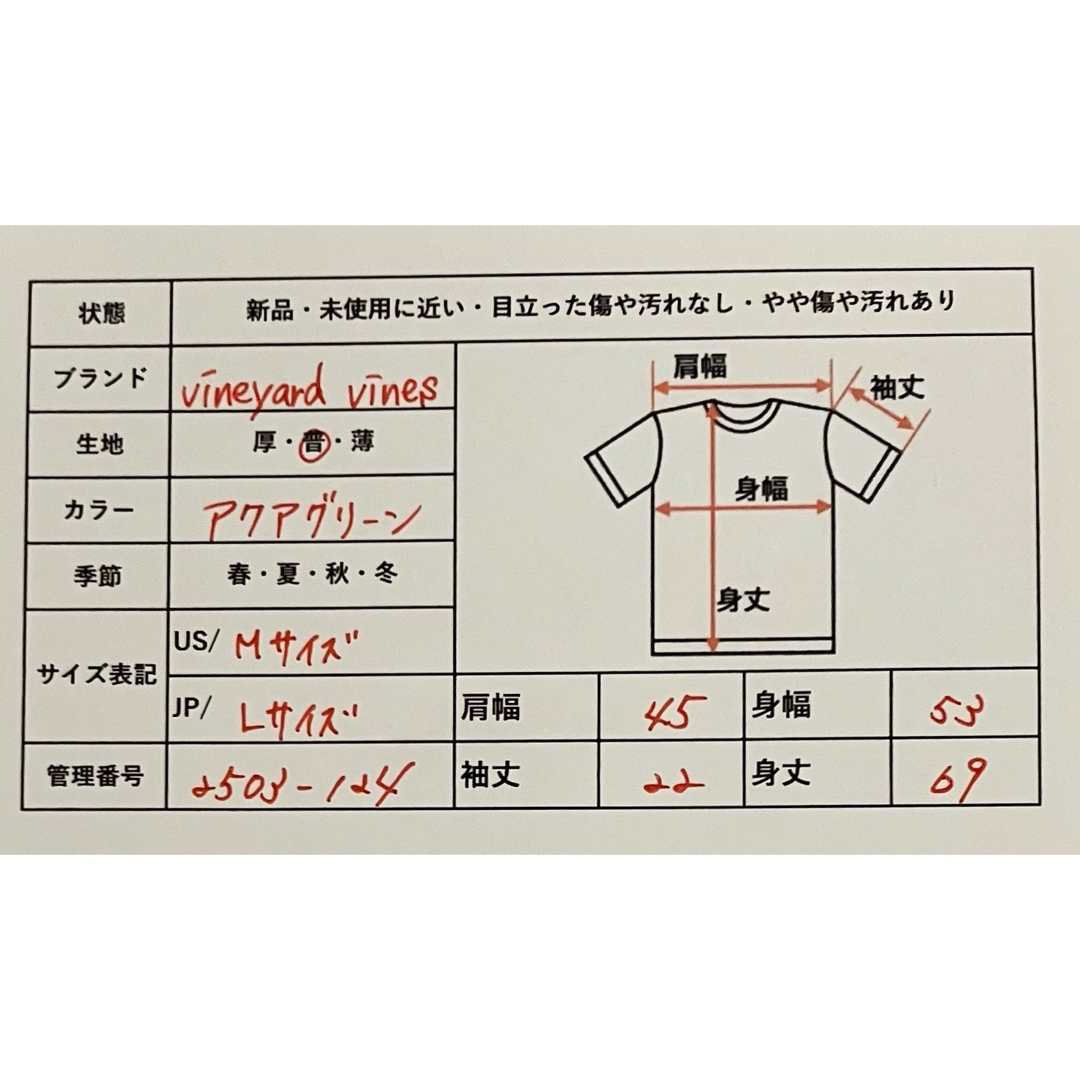 状態 新品・未使用に近い・目立った傷や汚れなし・やや傷や汚れあり
ブランド vineyard vines
生地 厚・普・薄
カラー アクアグリーン
季節 春・夏・秋・冬
サイズ表記
US/ Mサイズ
JP/ Lサイズ
管理番号 2503-124
肩幅
袖丈
身幅
身丈
肩幅 45 身幅 53
袖丈 22 身丈 69